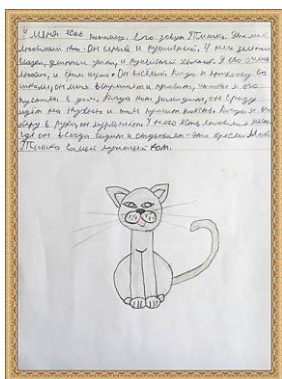 У меня есть питомец. Его зовут Тишка. Это мой
любимый кот. Он серый и пушистый. У него зелёные
глаза, длинные усы, и пушистый хвост. Я его очень
люблю, и с ним играю. Он весёлый. Когда я прихожу со
школы, он меня встречает и просит, чтобы я его
пустила в дом. Когда кот заходит, он сразу
идёт на кухню и там
беру в руки, он мурлыкает. У него есть любимое место
где он всегда сидит и отдыхает - это кресло. Мой
Тишка самый лучший кот.